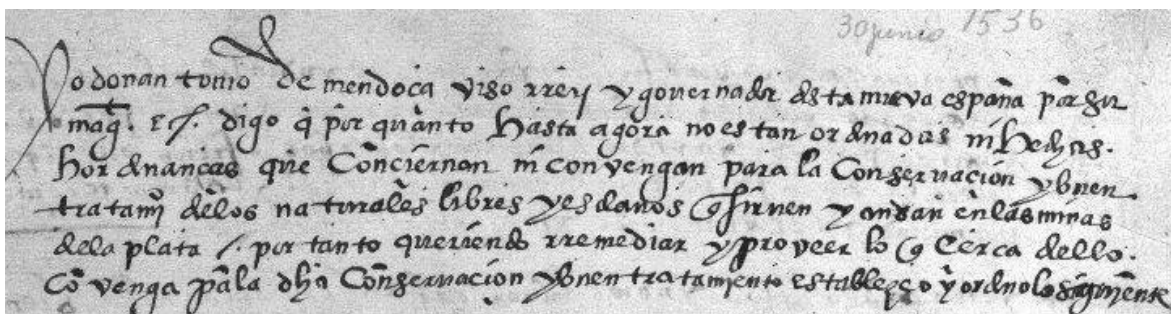 30 junio 1536
Yo don antonio de mendoça viso rrey y governador desta nueva españa por su
mag. &. digo q por quanto hasta agora no estan ordnadas ni hechas
hordnanças que conçiernan ni convengan para la conservaçion y buen
tratamio delos naturales libres y esclavos q sirven y andan en las minas
dela plata /. por tanto queriendo rremediar y proveer lo q çerca dello
cōvenga pa la dha conservaçion y buen tratamiento establezco y ordno lo siguiente